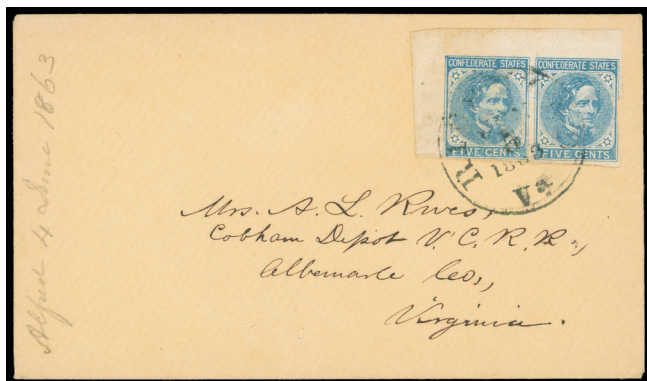 Alfred 4 June 1863
CONFEDERATE STATES
FIVE CENTS
CONFEDERATE STATES
FIVE CENTS
1863
Va
Mrs. A. L. Rives,
Cobham Depot V. C. R. R.,
Albemarle Co.,
Virginia.